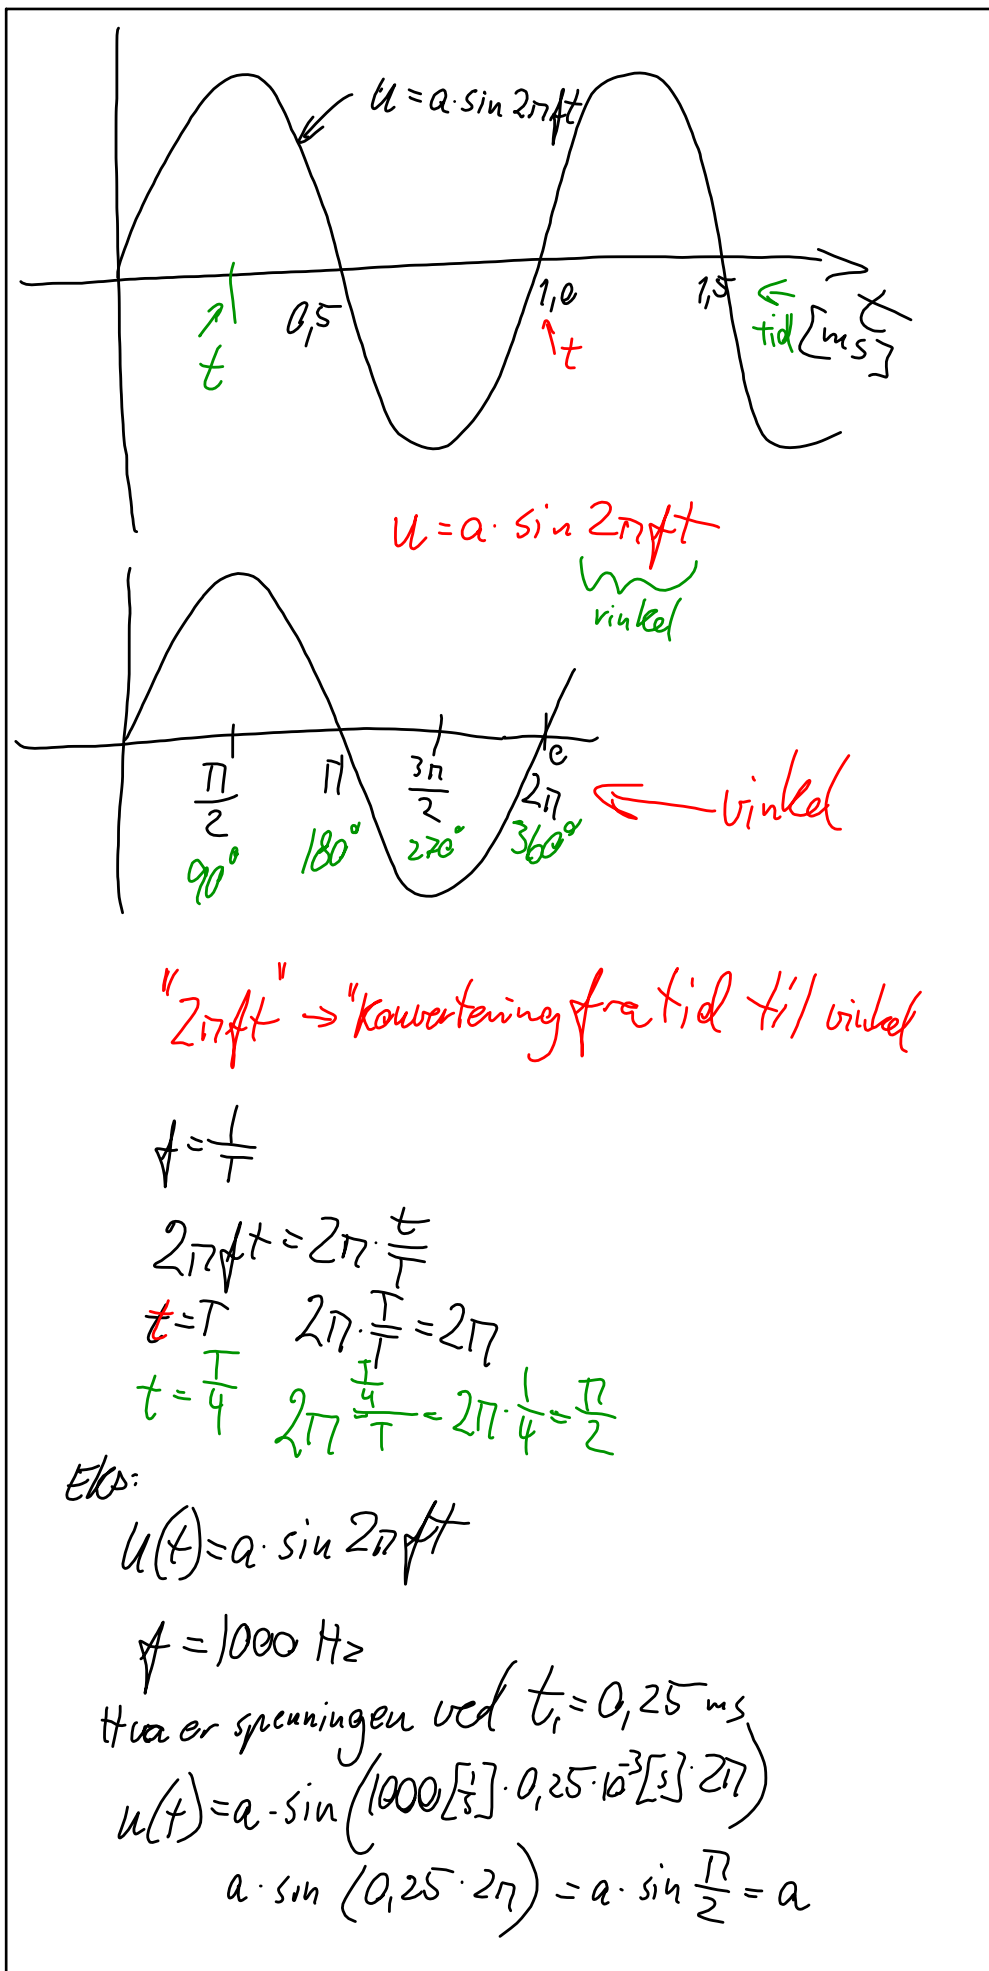 u = a · sin 2πft
0,5 1,0 1,5 t
t t tid [ms]
u = a · sin 2πft
vinkel
π/2 π 3π/2 2π vinkel
90° 180° 270° 360°
"2πft" → "Konvertering fra tid til vinkel
f = 1/T
2πft = 2π · t/T
t = T 2π · T/T = 2π
t = T/4 2π (T/4)/T = 2π · 1/4 = π/2
Eks:
u(t) = a · sin 2πft
f = 1000 Hz
Hva er spenningen ved t₁ = 0,25 ms
u(t) = a · sin (1000 [1/s] · 0,25 · 10⁻³ [s] · 2π)
a · sin (0,25 · 2π) = a · sin π/2 = a